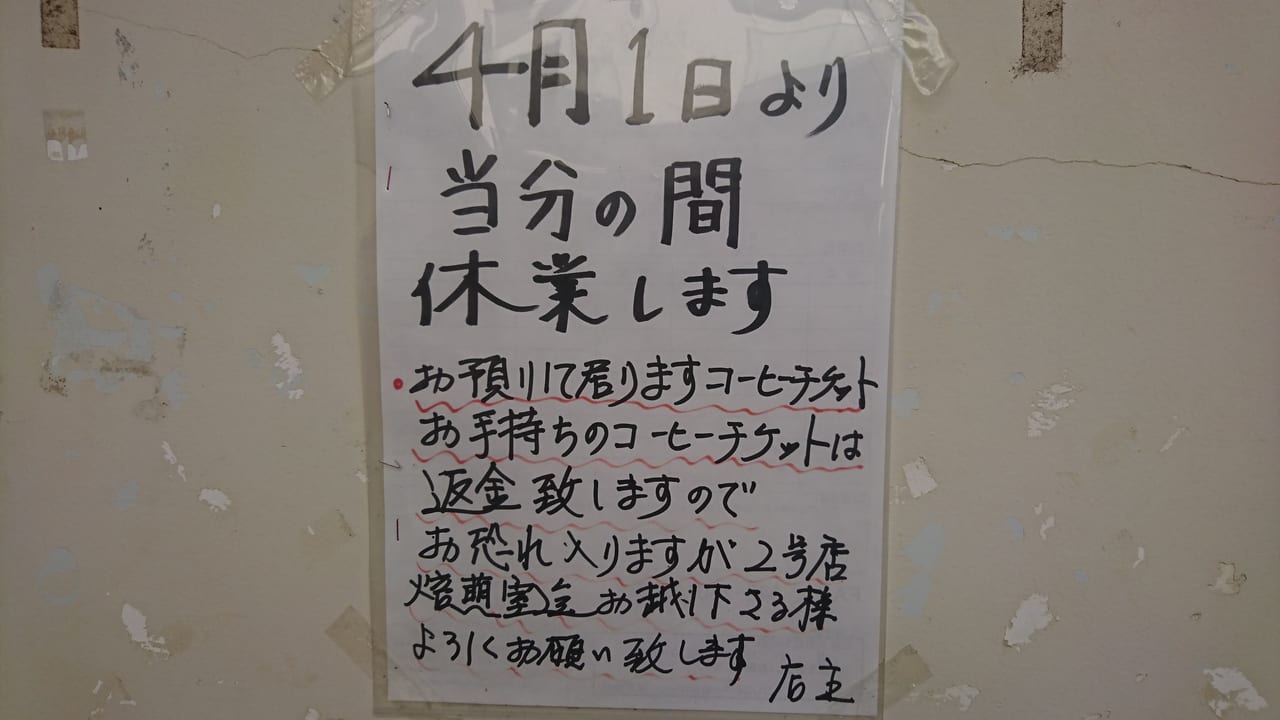 4月1日より
当分の間
休業します
・お預りして居りますコーヒーチケット
お手持ちのコーヒーチケットは
返金致しますので
お恐れ入りますが2号店
お越し下さる様
よろしくお願い致します
店主